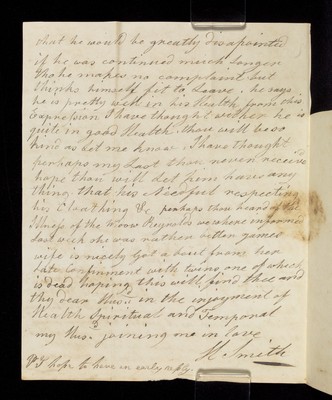 that he would be greatly disapointed
if he was continued much longer
Tho he makes no complaint but
thinks himself fit to leave, he says
he is pretty well in his Health, from this
Expression I have thought wether he is
quite in good Health. thou will be so
kind as let me know. I have thought
perhaps my last thou never receive
hope thou will let him have any
thing that his Needful respecting
his Cloathing &c perhaps thou heard of the
Illness of the Reynolds we where informed
last week she was rather better James
wife is nicely Got a bout from her
late Confinement with two one of which
is dead hoping this will find thee and
thy dear in the injoyment of
Health Spiritual and Temporal
my joining me in love
M. Smith
PS I hope to have an early reply.